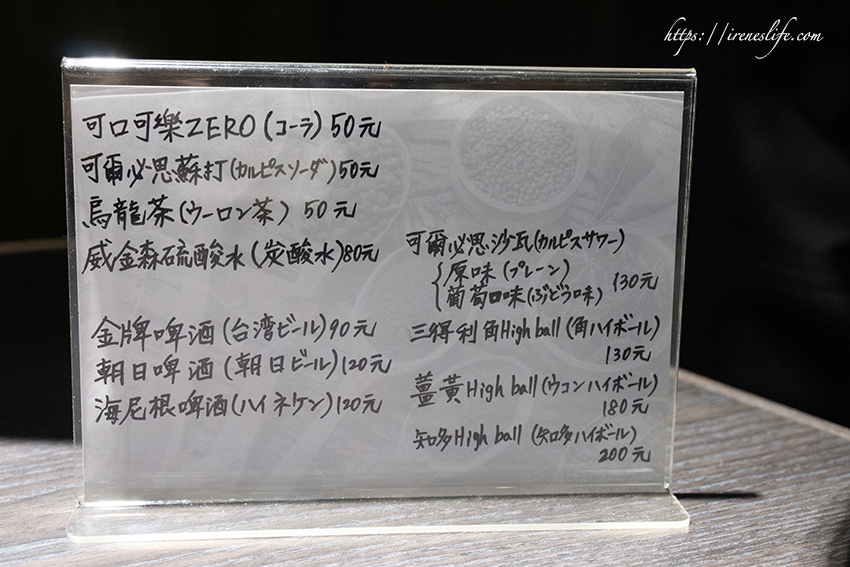 https://ireneslife.com
可口可樂ZERO(コーラ)50元
可爾必思蘇打(カルピスソーダ)50元
烏龍茶(ウーロン茶) 50元
威金森硫酸水(炭酸水)80元
金牌啤酒(台湾ビール)90元
朝日啤酒(朝日ビール)120元
海尼根啤酒(ハイネケン)120元
可爾必思沙瓦(カルピスサワー)
原味(プレーン)
葡萄口味(ぶどう味) 130元
三得利角High ball(角ハイボール)
130元
薑黃High ball(ウコンハイボール)
180元
知多High ball (知多ハイボール)
200元